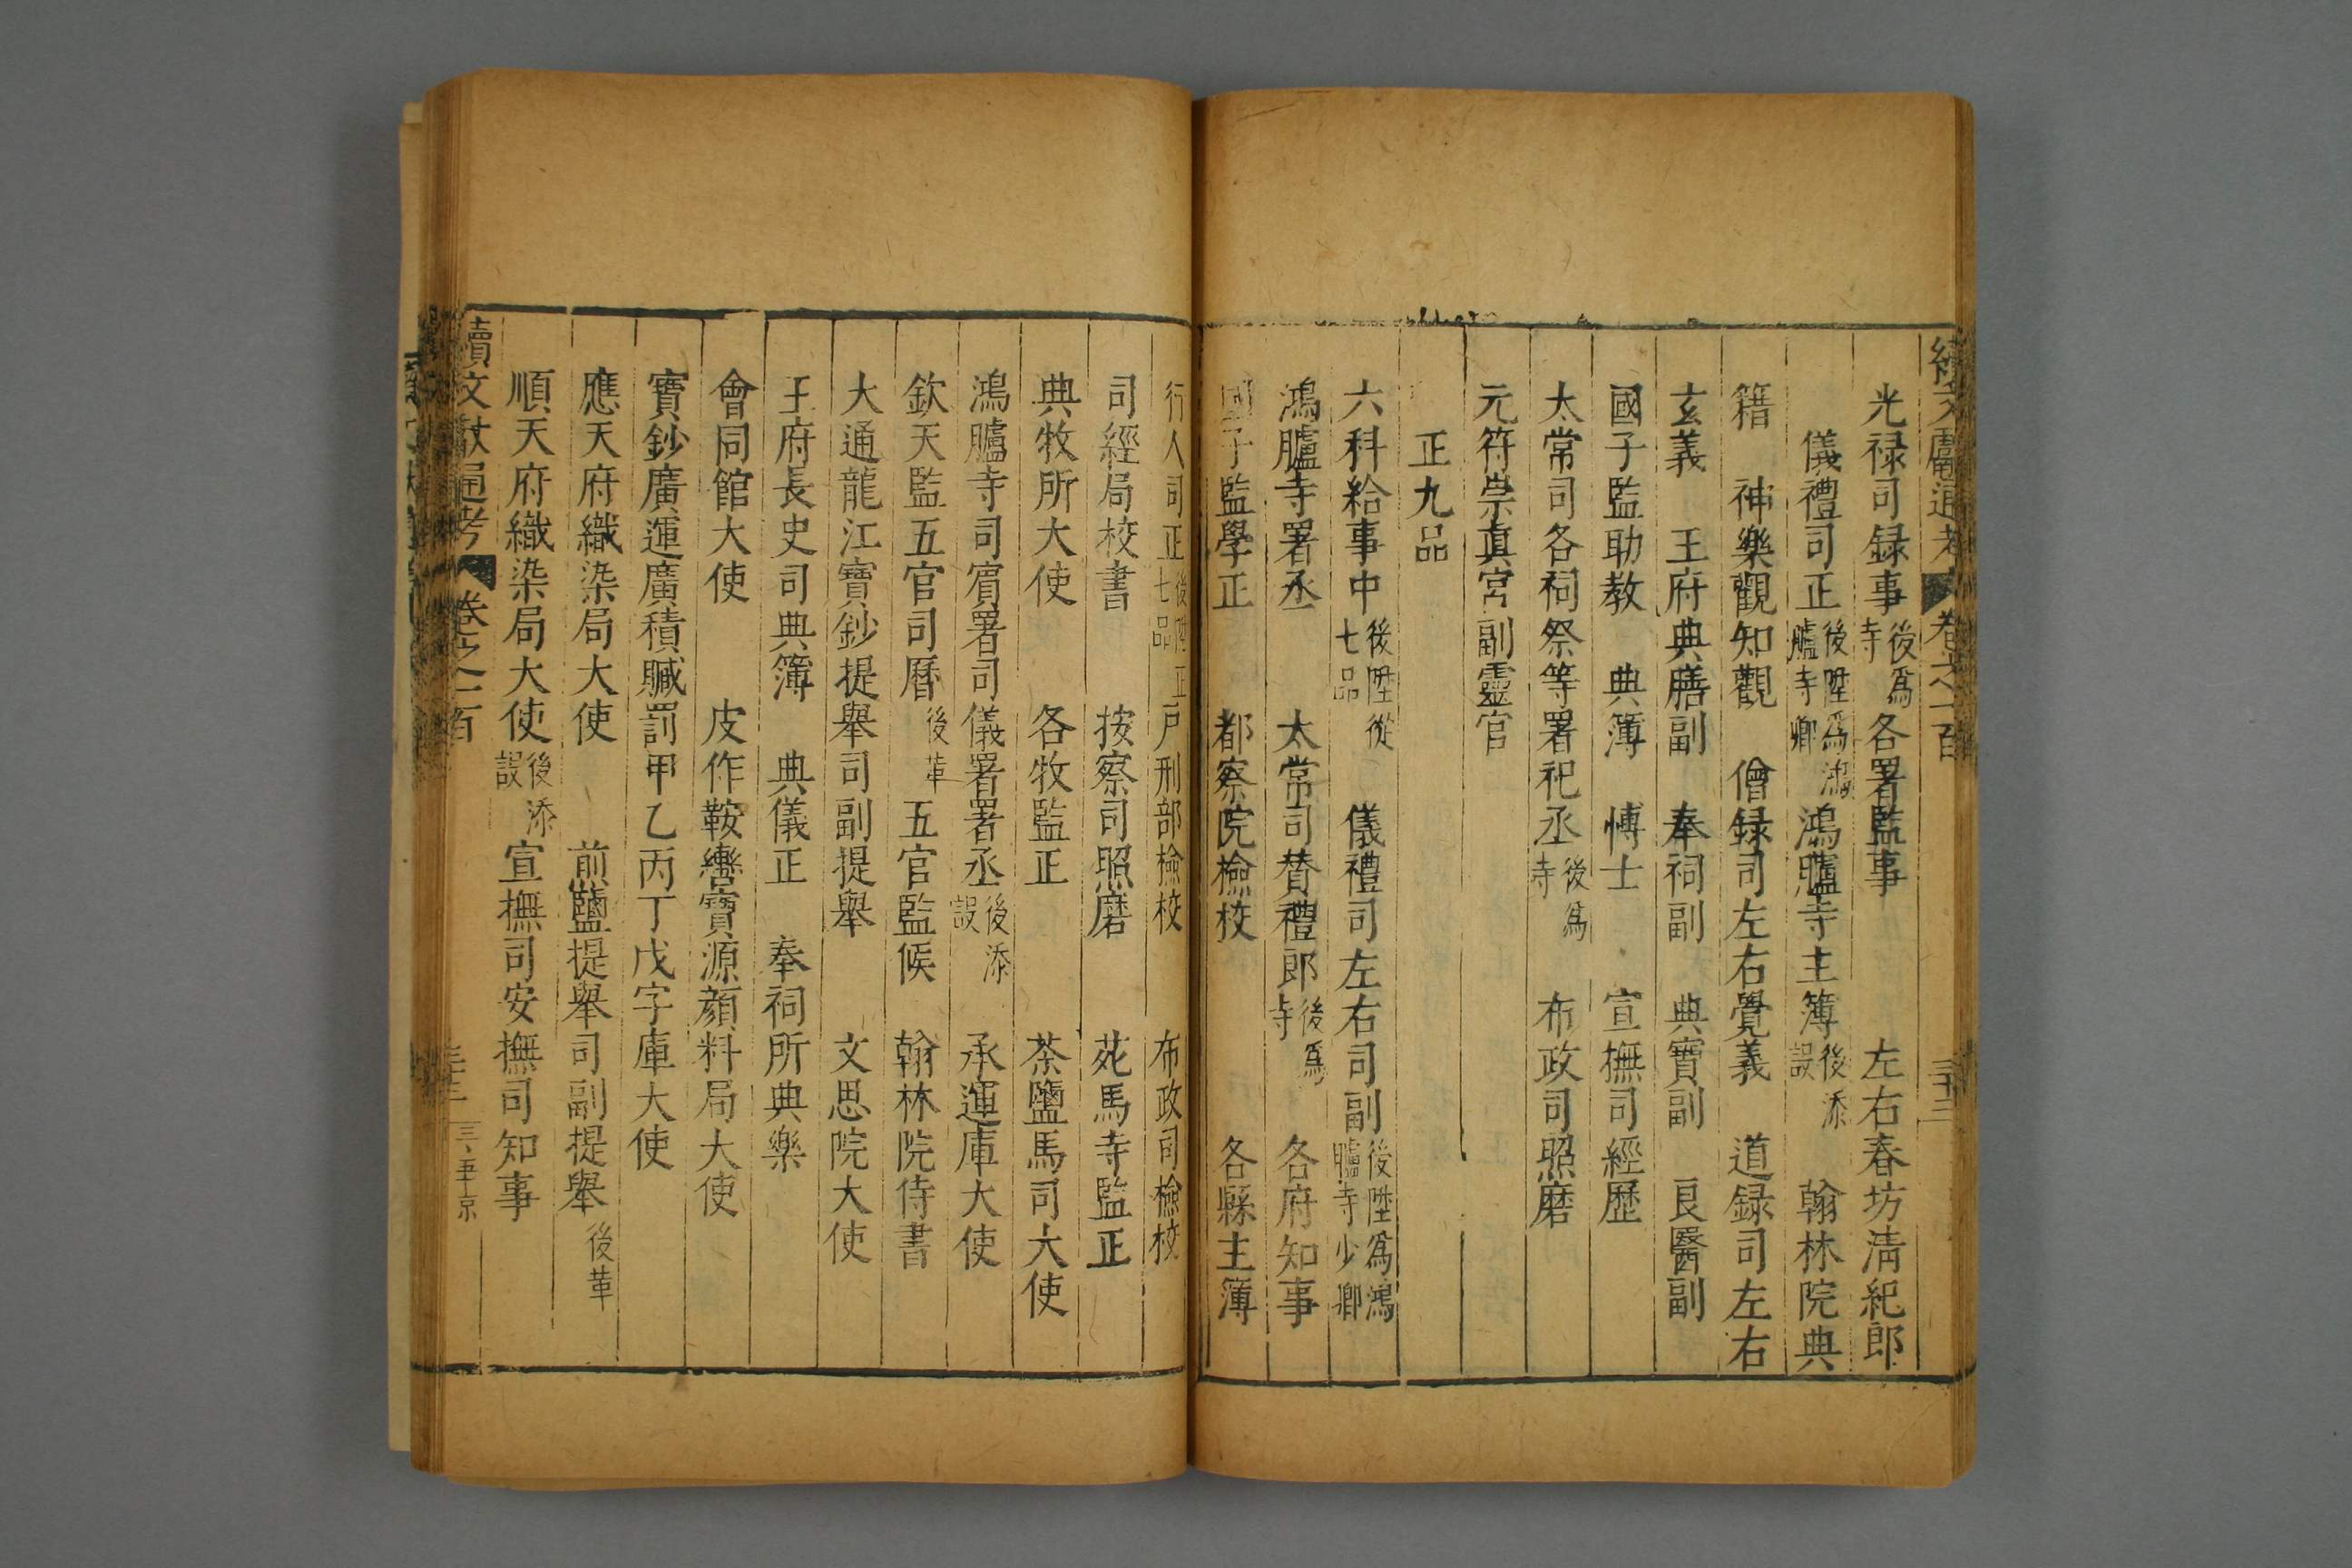 續文獻通考 卷之一百
光禄司録事後爲寺 各署監事 左右春坊淸紀郎
儀禮司正後陞爲鴻臚寺卿 鴻臚寺主簿後添設 翰林院典
籍 神樂觀知觀 僧録司左右覺義 道録司左右
玄義 王府典膳副 奉祠副 典寶副 良醫副
國子監助教 典簿 博士 宣撫司經歷
太常司各祠祭等署祀丞後爲寺 布政司照磨
元符崇眞宮副靈官
正九品
六科給事中後陞從七品 儀禮司左右司副後陞爲鴻臚寺少卿
鴻臚寺署丞 太常司賛禮郎後爲寺 各府知事
國子監學正 都察院檢校 各縣主簿
行人司正後陞正七品 户刑部檢校 布政司檢校
司經局校書 按察司照磨 苑馬寺監正
典牧所大使 各牧監正 茶鹽馬司大使
鴻臚寺司賔署司儀署署丞後添設 承運庫大使
欽天監五官司曆後革 五官監候 翰林院侍書
大通龍江寶鈔提舉司副提舉 文思院大使
王府長史司典簿 典儀正 奉祠所典樂
會同館大使 皮作鞍轡寶源顔料局大使
寶鈔廣運廣積贓罰甲乙丙丁戊字庫大使
應天府織染局大使 煎鹽提舉司副提舉後革
順天府織染局大使後添設 宣撫司安撫司知事
續文獻通考 卷之一百